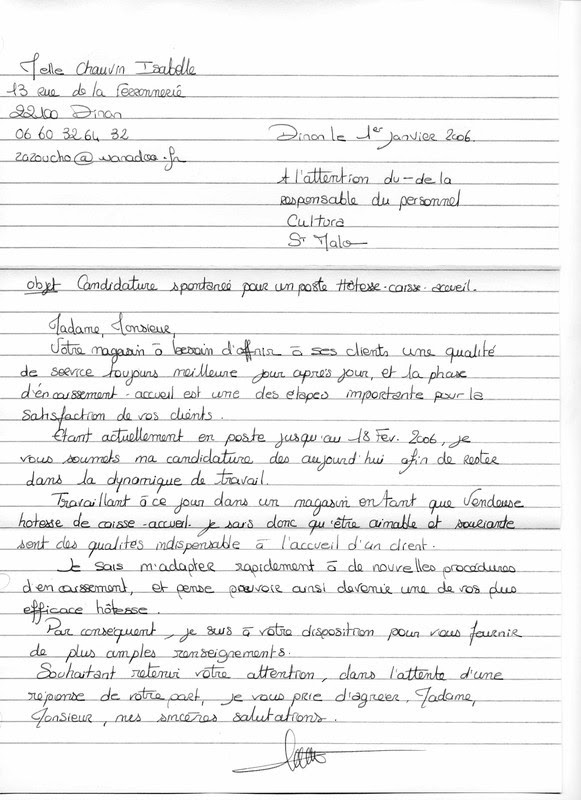 Melle Chauvin Isabelle
13 rue de la Ferronnerie
22100 Dinan
06 60 32 64 32
zazoucho@wanadoo.fr
Dinan le 1er Janvier 2006.
A l'attention du-de la
responsable du personnel
Cultura
St Malo
objet Candidature spontaneé pour un poste Hôtesse-caisse-accueil.
Madame, Monsieur,
Votre magasin à besoin d'offrir à ses clients une qualité
de service toujours meilleure jour après jour, et la phase
d'encaissement-accueil est une des étapes importante pour la
satisfaction de vos clients.
Étant actuellement en poste jusqu'au 18 Fev. 2006, je
vous soumets ma candidature des aujourd'hui afin de rester
dans la dynamique de travail.
Travaillant à ce jour dans un magasin en tant que Vendeuse
hotesse de caisse-accueil. je sais donc qu'être aimable et souriante
sont des qualités indispensable à l'accueil d'un client.
Je sais m'adapter rapidement à de nouvelles procédures
d'encaissement, et pense pouvoir ainsi devenir une de vos plus
efficace hôtesse.
Par conséquent, je suis à votre disposition pour vous fournir
de plus amples renseignements.
Souhaitant retenir votre attention, dans l'attente d'une
réponse de votre part, je vous prie d'agreer, Madame,
Monsieur, mes sincères salutations.